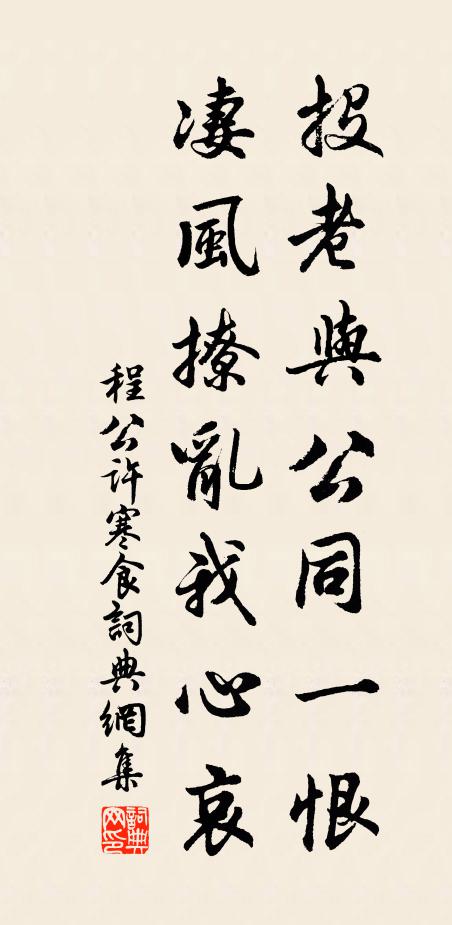 投老與公同一恨
凄風撩亂我心哀
程公許寒食詞典網集
詞典网印